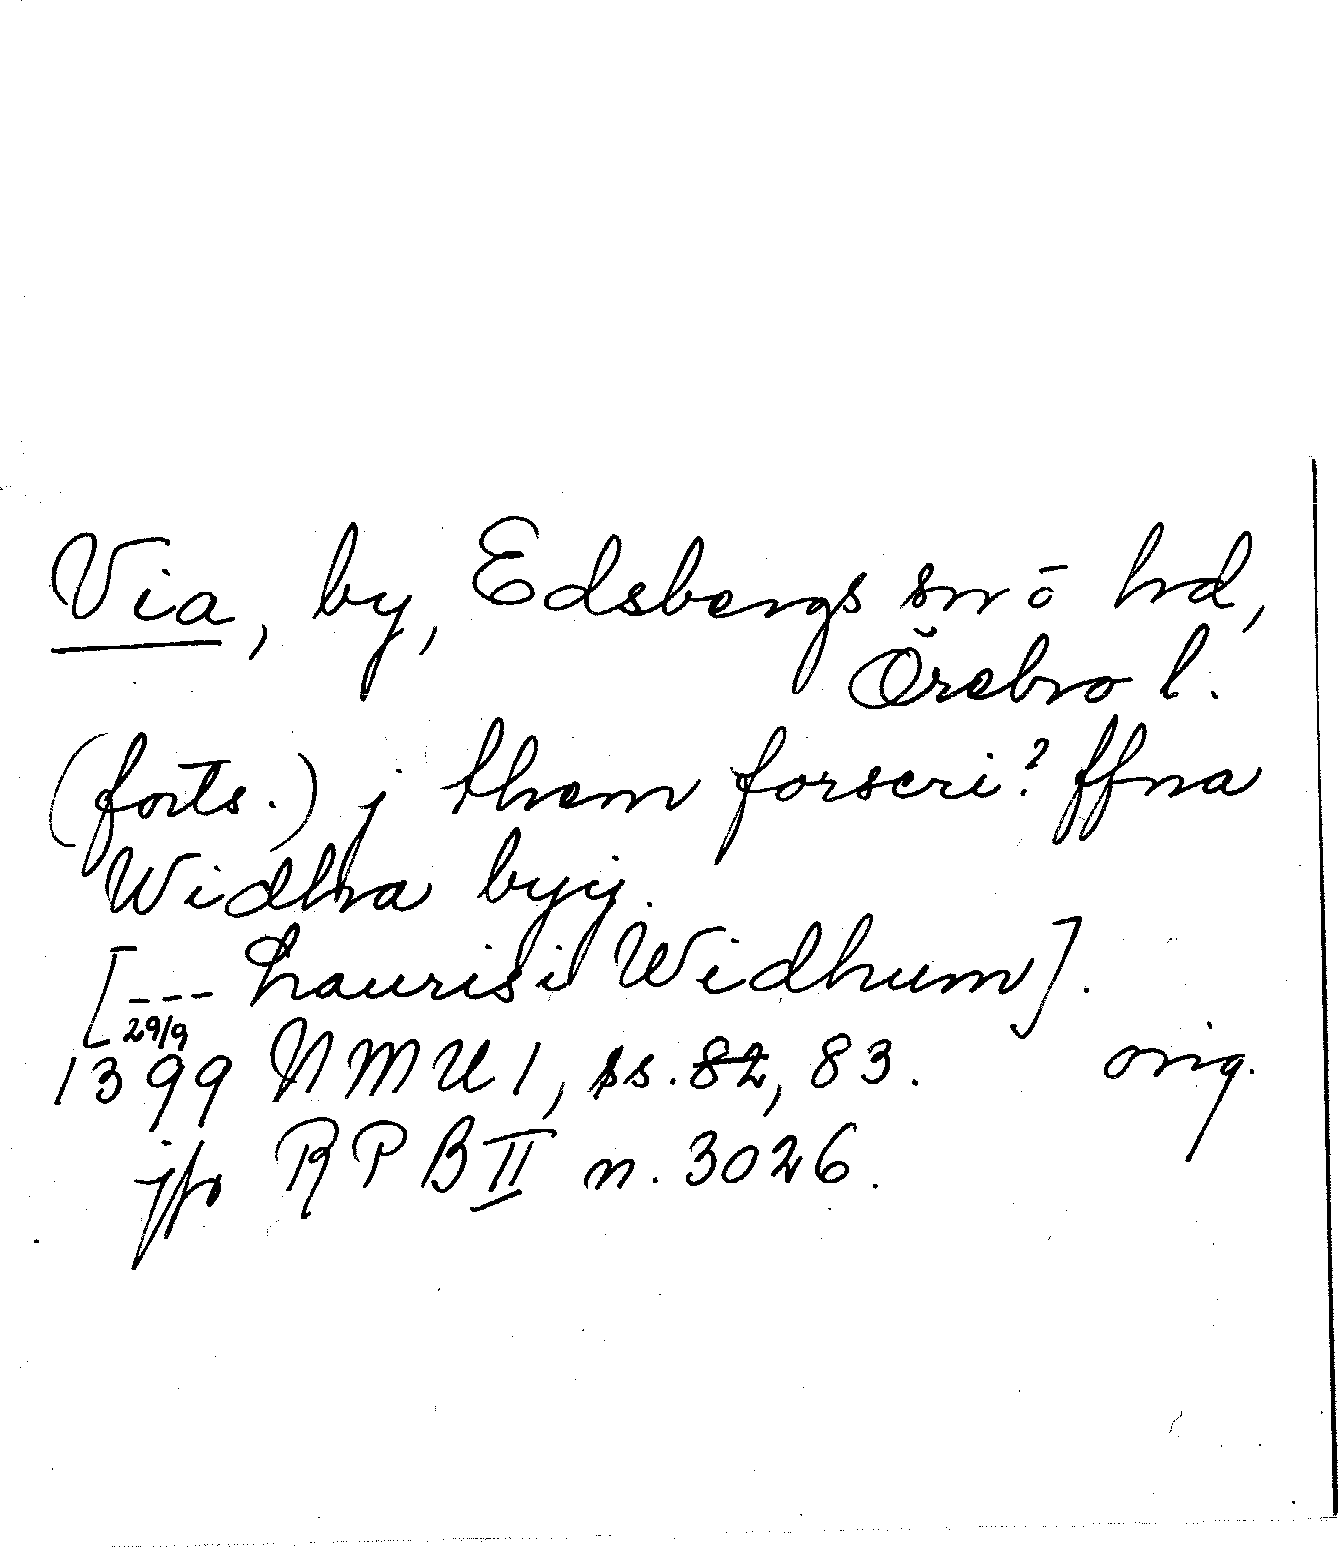 Via, by, Edsbergs sn o hd,
Örebro l.
(forts.) j them forscri? ffna
Widhra byy.
[--- Laurisi Widhum].
29/9
1399 NMU 1, ss. 82, 83. orig.
jfr RPB II n. 3026.